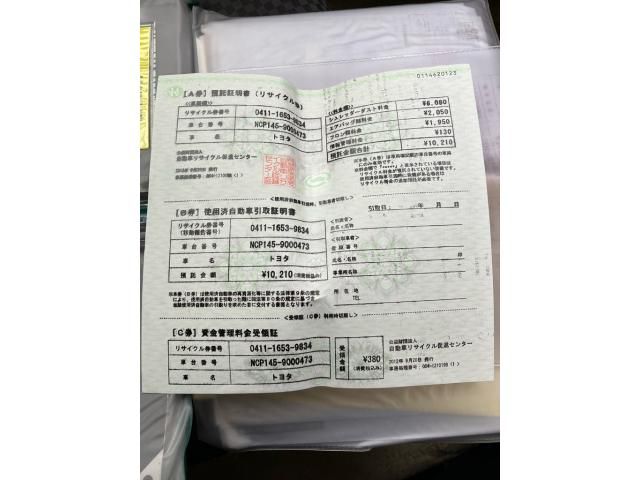 0114620123
【A券】預託証明書(リサイクル券)
リサイクル券番号 0411-1653-9834
車台番号 NCP145-9000473
車名 トヨタ
シュレッダーダスト料金 ¥6,080
エアバッグ類料金 ¥2,050
フロン類料金 ¥1,950
情報管理料金 ¥130
預託金額合計 ¥10,210
公益財団法人
自動車リサイクル促進センター
引取日: 年 月 日
【B券】使用済自動車引取証明書
リサイクル券番号 0411-1653-9834
(移動報告番号)
車台番号 NCP145-9000473
車名 トヨタ
預託金額 ¥10,210(消費税込み)
氏名・名称
事業所名
所在地
TEL
<受領証(C券)利用時切離し>
【C券】資金管理料金受領証
リサイクル券番号 0411-1653-9834
車台番号 NCP145-9000473
車名 トヨタ
受領金額 ¥380
(消費税込み)
公益財団法人
自動車リサイクル促進センター
2012年 9月20日 発行